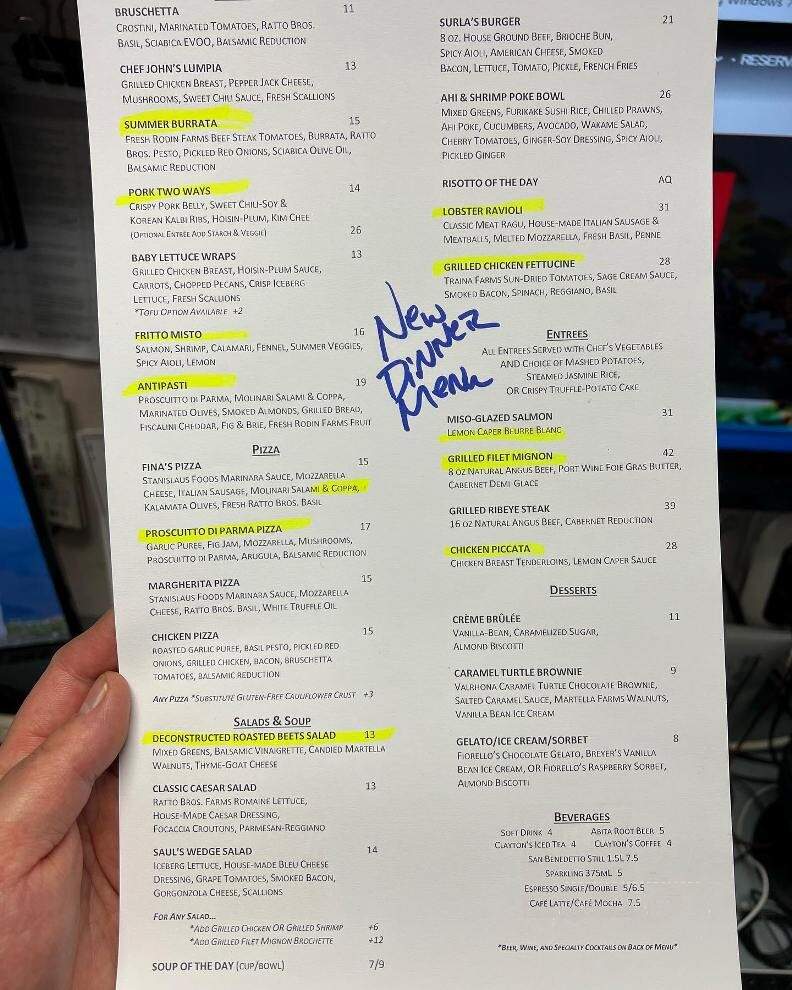 BRUSCHETTA 11
CROSTINI, MARINATED TOMATOES, RATTO BROS.
BASIL, SCIABICA EVOO, BALSAMIC REDUCTION
CHEF JOHN'S LUMPIA 13
GRILLED CHICKEN BREAST, PEPPER JACK CHEESE,
MUSHROOMS, SWEET CHILI SAUCE, FRESH SCALLIONS
SUMMER BURRATA 15
FRESH RODIN FARMS BEEF STEAK TOMATOES, BURRATA, RATTO
BROS. PESTO, PICKLED RED ONIONS, SCIABICA OLIVE OIL,
BALSAMIC REDUCTION
PORK TWO WAYS 14
CRISPY PORK BELLY, SWEET CHILI-SOY &
KOREAN KALBI RIBS, HOISIN-PLUM, KIM CHEE
(OPTIONAL ENTRÉE ADD STARCH & VEGGIE) 26
BABY LETTUCE WRAPS 13
GRILLED CHICKEN BREAST, HOISIN-PLUM SAUCE,
CARROTS, CHOPPED PECANS, CRISP ICEBERG
LETTUCE, FRESH SCALLIONS
*TOFU OPTION AVAILABLE +2
FRITTO MISTO 16
SALMON, SHRIMP, CALAMARI, FENNEL, SUMMER VEGGIES,
SPICY AIOLI, LEMON
ANTIPASTI 19
PROSCUITTO DI PARMA, MOLINARI SALAMI & COPPA,
MARINATED OLIVES, SMOKED ALMONDS, GRILLED BREAD,
FISCALINI CHEDDAR, FIG & BRIE, FRESH RODIN FARMS FRUIT
PIZZA
FINA'S PIZZA 15
STANISLAUS FOODS MARINARA SAUCE, MOZZARELLA
CHEESE, ITALIAN SAUSAGE, MOLINARI SALAMI & COPPA,
KALAMATA OLIVES, FRESH RATTO BROS. BASIL
PROSCUITTO DI PARMA PIZZA 17
GARLIC PUREE, FIG JAM, MOZZARELLA, MUSHROOMS,
PROSCUITTO DI PARMA, ARUGULA, BALSAMIC REDUCTION
MARGHERITA PIZZA 15
STANISLAUS FOODS MARINARA SAUCE, MOZZARELLA
CHEESE, RATTO BROS. BASIL, WHITE TRUFFLE OIL
CHICKEN PIZZA 15
ROASTED GARLIC PUREE, BASIL PESTO, PICKLED RED
ONIONS, GRILLED CHICKEN, BACON, BRUSCHETTA
TOMATOES, BALSAMIC REDUCTION
ANY PIZZA *SUBSTITUTE GLUTEN-FREE CAULIFLOWER CRUST +3
SALADS & SOUP
DECONSTRUCTED ROASTED BEETS SALAD 13
MIXED GREENS, BALSAMIC VINAIGRETTE, CANDIED MARTELLA
WALNUTS, THYME-GOAT CHEESE
CLASSIC CAESAR SALAD 13
RATTO BROS. FARMS ROMAINE LETTUCE,
HOUSE-MADE CAESAR DRESSING,
FOCACCIA CROUTONS, PARMESAN-REGGIANO
SAUL'S WEDGE SALAD 14
ICEBERG LETTUCE, HOUSE-MADE BLEU CHEESE
DRESSING, GRAPE TOMATOES, SMOKED BACON,
GORGONZOLA CHEESE, SCALLIONS
FOR ANY SALAD...
*ADD GRILLED CHICKEN OR GRILLED SHRIMP +6
*ADD GRILLED FILET MIGNON BROCHETTE +12
SOUP OF THE DAY (CUP/BOWL) 7/9
New
DINNER
Menu
SURLA'S BURGER 21
8 OZ. HOUSE GROUND BEEF, BRIOCHE BUN,
SPICY AIOLI, AMERICAN CHEESE, SMOKED
BACON, LETTUCE, TOMATO, PICKLE, FRENCH FRIES
AHI & SHRIMP POKE BOWL 26
MIXED GREENS, FURIKAKE SUSHI RICE, CHILLED PRAWNS,
AHI POKE, CUCUMBERS, AVOCADO, WAKAME SALAD,
CHERRY TOMATOES, GINGER-SOY DRESSING, SPICY AIOLI,
PICKLED GINGER
RISOTTO OF THE DAY AQ
LOBSTER RAVIOLI 31
CLASSIC MEAT RAGU, HOUSE-MADE ITALIAN SAUSAGE &
MEATBALLS, MELTED MOZZARELLA, FRESH BASIL, PENNE
GRILLED CHICKEN FETTUCINE 28
TRAINA FARMS SUN-DRIED TOMATOES, SAGE CREAM SAUCE,
SMOKED BACON, SPINACH, REGGIANO, BASIL
ENTREES
ALL ENTREES SERVED WITH CHEF'S VEGETABLES
AND CHOICE OF MASHED POTATOES,
STEAMED JASMINE RICE,
OR CRISPY TRUFFLE-POTATO CAKE
MISO-GLAZED SALMON 31
LEMON CAPER BEURRE BLANC
GRILLED FILET MIGNON 42
8 OZ NATURAL ANGUS BEEF, PORT WINE FOIE GRAS BUTTER,
CABERNET DEMI GLACE
GRILLED RIBEYE STEAK 39
16 OZ NATURAL ANGUS BEEF, CABERNET REDUCTION
CHICKEN PICCATA 28
CHICKEN BREAST TENDERLOINS, LEMON CAPER SAUCE
DESSERTS
CRÈME BRÛLÉE 11
VANILLA-BEAN, CARAMELIZED SUGAR,
ALMOND BISCOTTI
CARAMEL TURTLE BROWNIE 9
VALRHONA CARAMEL TURTLE CHOCOLATE BROWNIE,
SALTED CARAMEL SAUCE, MARTELLA FARMS WALNUTS,
VANILLA BEAN ICE CREAM
GELATO/ICE CREAM/SORBET 8
FIORELLO'S CHOCOLATE GELATO, BREYER'S VANILLA
BEAN ICE CREAM, OR FIORELLO'S RASPBERRY SORBET,
ALMOND BISCOTTI
BEVERAGES
SOFT DRINK 4 ABITA ROOT BEER 5
CLAYTON'S ICED TEA 4 CLAYTON'S COFFEE 4
SAN BENEDETTO STILL 1.5L 7.5
SPARKLING 375ML 5
ESPRESSO SINGLE/DOUBLE 5/6.5
CAFÉ LATTE/CAFÉ MOCHA 7.5
*BEER, WINE, AND SPECIALTY COCKTAILS ON BACK OF MENU*
Windows 7
• RESERV